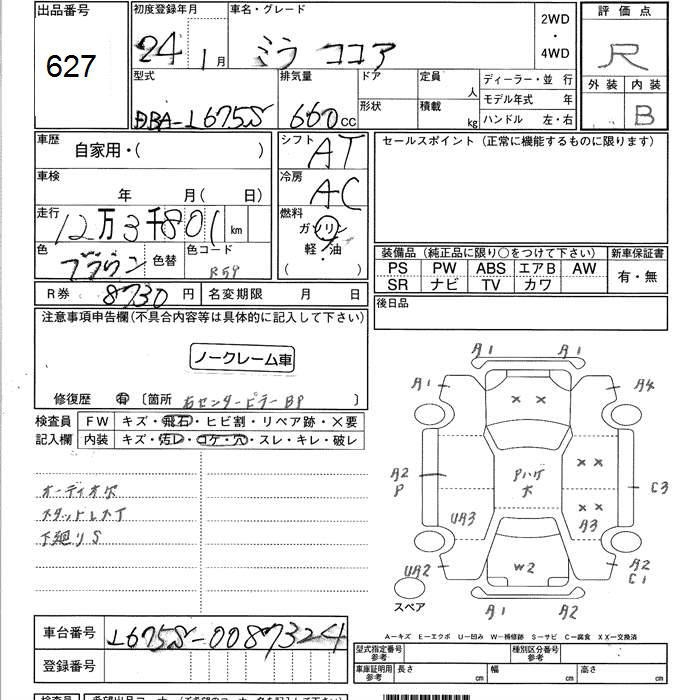 出品番号
627
初度登録年月
24 1月
車名・グレード
ミラ ココア
2WD
・
4WD
評価点
R
外装 内装
B
型式
DBA-L675S
排気量
660cc
ドア
形状
定員 人
積載 kg
ディーラー・並 行
モデル年式 年
ハンドル 左・右
車歴
自家用・( )
車検
年 月(日)
走行
12万3千801 km
色
ブラウン
色替
色コード
R59
シフト
AT
冷房
AC
燃料
ガソリン
軽・油
( )
セールスポイント(正常に機能するものに限ります)
装備品(純正品に限り○をつけて下さい)
新車保証書
PS PW ABS エアB AW
SR ナビ TV カワ
有・無
後日品
R券 8730円 名変期限 月 日
注意事項申告欄(不具合内容等は具体的に記入して下さい)
ノークレーム車
修復歴 有 〔箇所 右センターピラーBP 〕
検査員
記入欄
FW キズ・飛石・ヒビ割・リペア跡・×要
内装 キズ・汚レ・コゲ・穴・スレ・キレ・破レ
オーディオ欠
スタッドレスT
下廻りS
A1 A1
A1 A4
×× 
Pハゲ
大
××
××
A2
P
UA3
A3
C3
UA2
W2
A2
C1
A1 A2
スペア
A-キズ E-エクボ U-凹み W-補修跡 S-サビ C-腐食 XX-交換済
車台番号
L675S-0087324
登録番号
型式指定番号
参考
種別区分番号
参考
車庫証明用
参考
長さ cm 幅 cm 高さ cm